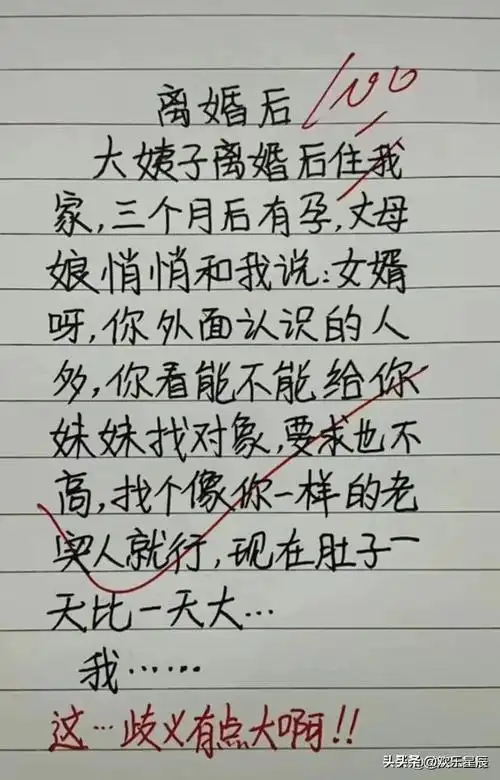 离婚后
100
大姨子离婚后住我
家,三个月后有孕,丈母
娘悄悄和我说:女婿
呀,你外面认识的人
多,你看能不能给你
妹妹找对象,要求也不
高,找个像你一样的老
实人就行,现在肚子一
天比一天大…
我……
这…歧义有点大啊!!
头条@娱乐星辰